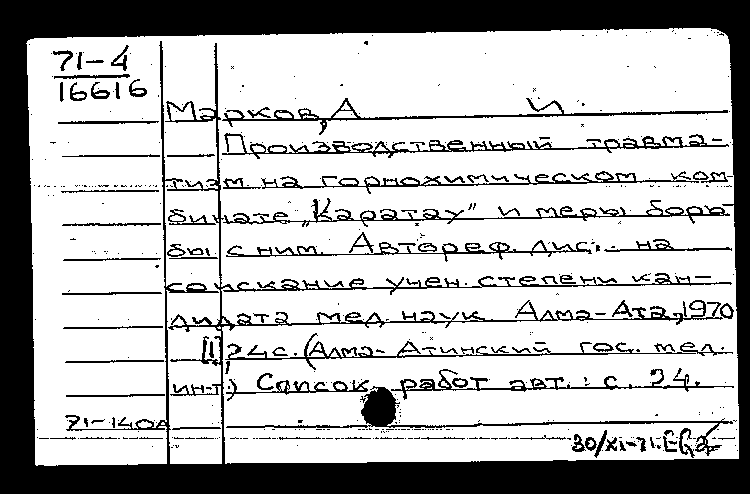 71-4
16616
Марков, А И.
Производственный травма-
тизм на горнохимическом ком
бинате „Каратау" и меры борь
бы с ним. Автореф. дис. на
соискание учен. степени кан-
дидата мед. наук. Алма-Ата, 1970
[1], 24 с. (Алма-Атинский гос. мед.
ин-т) Список работ авт.: с. 24.
71-140А
30/XI-71.